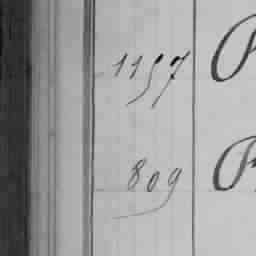 1157
809